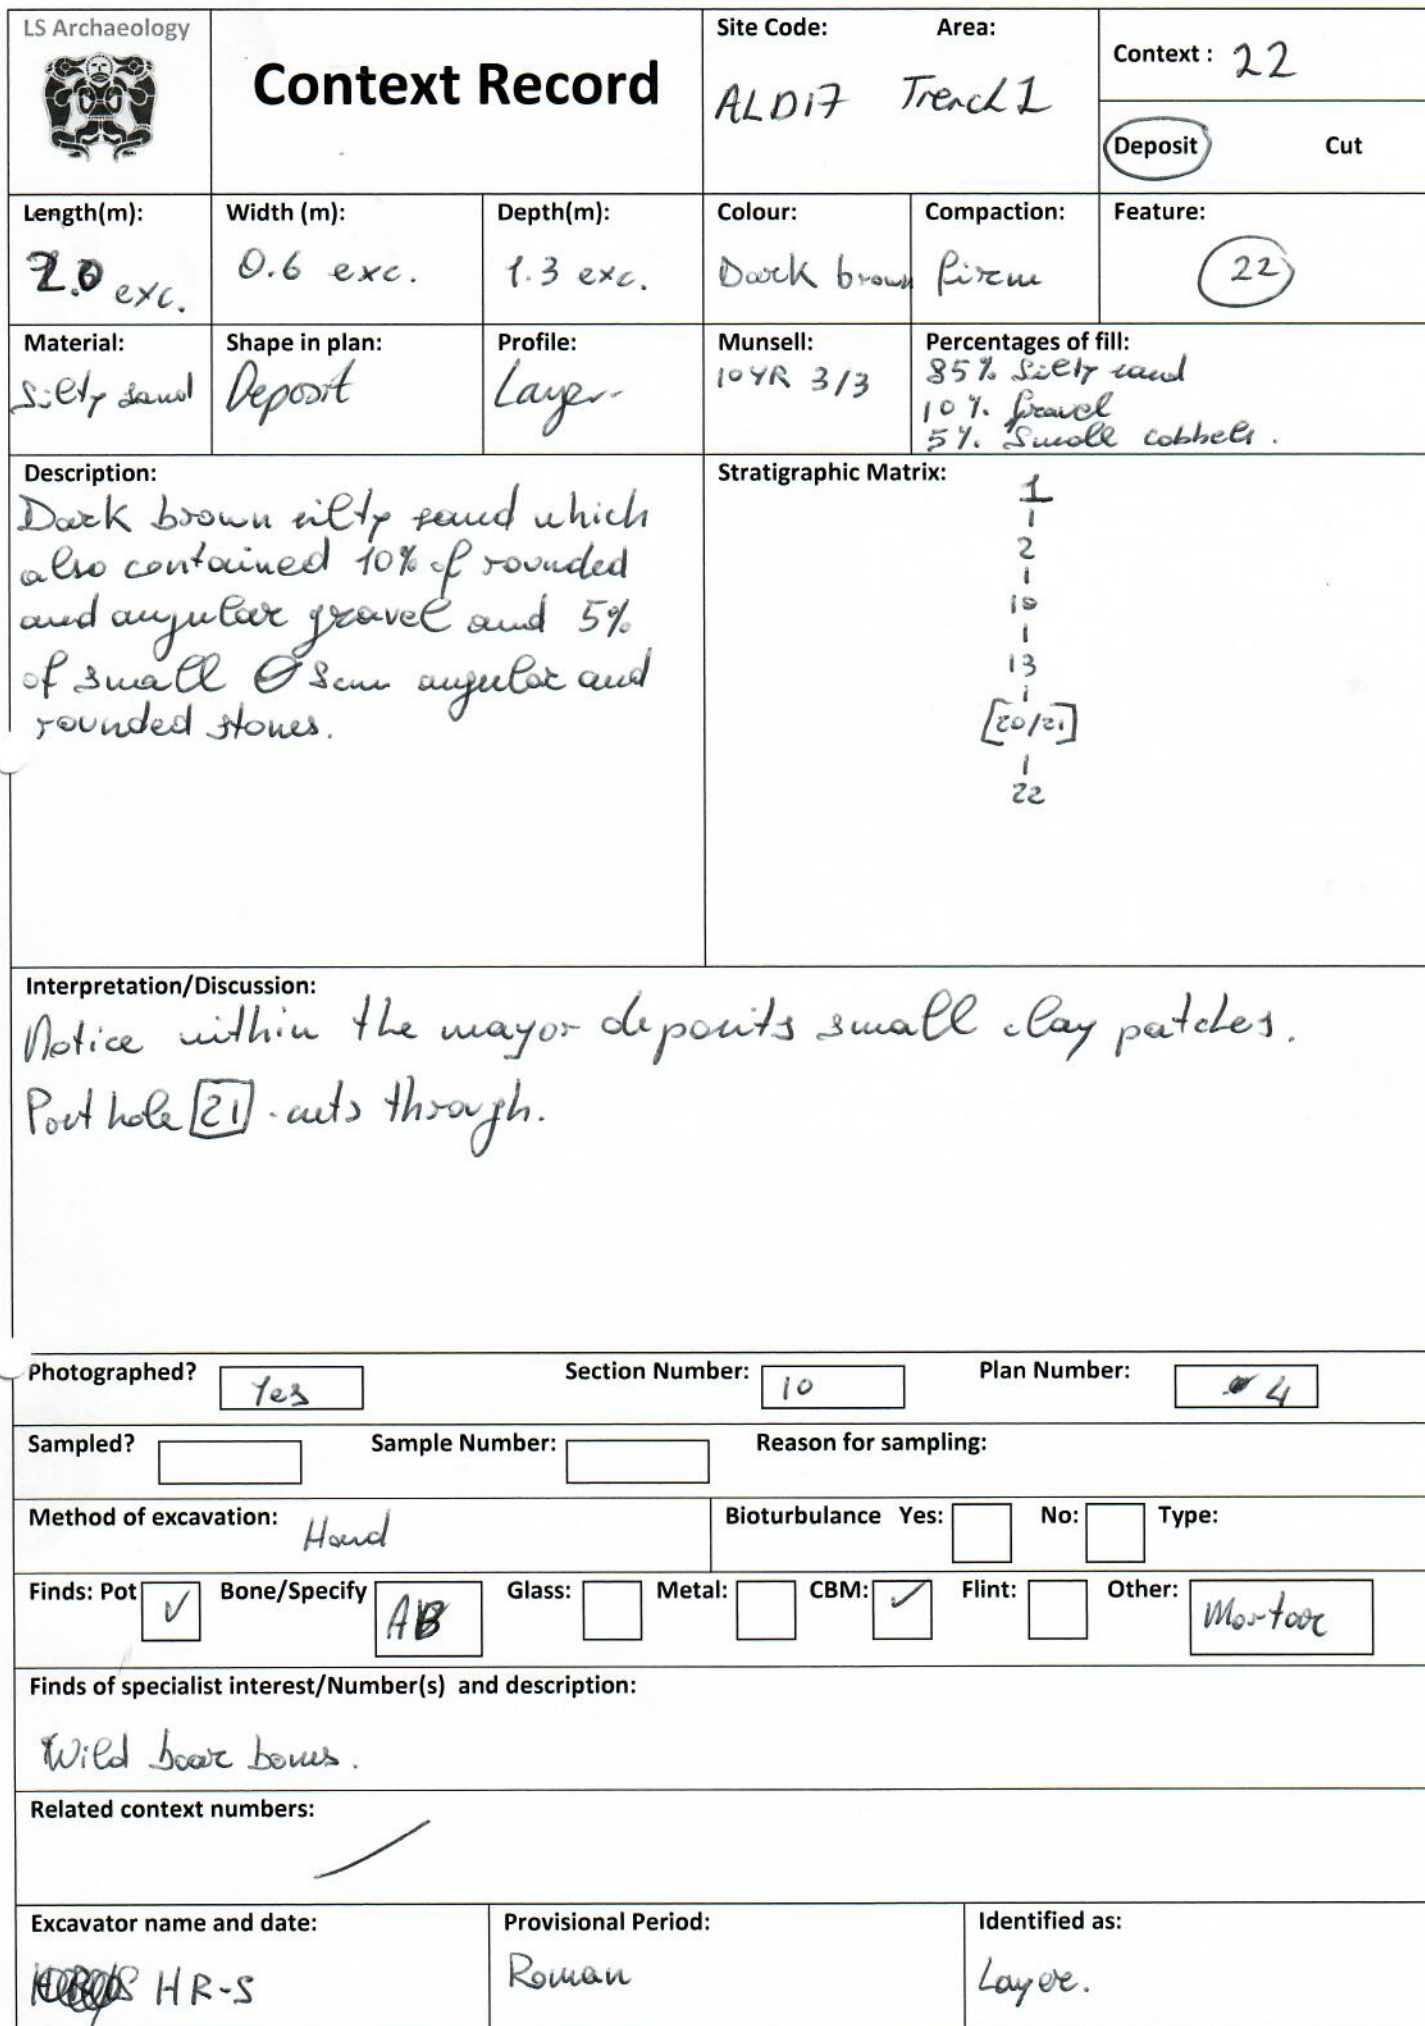 LS Archaeology
Context Record
Site Code: Area:
ALD17 Trench 1
Context : 22
Deposit Cut
Length(m): Width (m): Depth(m): Colour: Compaction: Feature:
2.0 exc. 0.6 exc. 1.3 exc. Dark brown firm 22
Material: Shape in plan: Profile: Munsell: Percentages of fill:
Silty sand Deposit Layer 10YR 3/3 85% Silty sand
10% Gravel
5% Small cobbels.
Description:
Dark brown silty sand which
also contained 10% of rounded
and angular gravel and 5%
of small Ø 5cm angular and
rounded stones.
Stratigraphic Matrix:
1
2
10
13
[20/21]
22
Interpretation/Discussion:
Notice within the mayor deposits small clay patches.
Post hole [21] cuts through.
Photographed? Yes Section Number: 10 Plan Number: 4
Sampled? Sample Number: Reason for sampling:
Method of excavation: Hand Bioturbulance Yes: No: Type:
Finds: Pot ✓ Bone/Specify AB Glass: Metal: CBM: ✓ Flint: Other: Mortar
Finds of specialist interest/Number(s) and description:
Wild boar bones.
Related context numbers:
Excavator name and date: Provisional Period: Identified as:
HR-S Roman Layer.